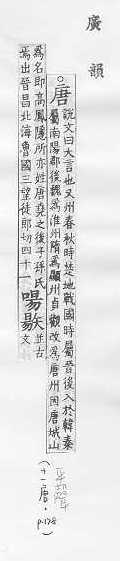 廣韻
○唐說文曰大言也又州春秋時楚地戰國時屬晉後入於韓秦
屬南陽郡後魏爲淮州隋爲顯州貞觀改爲唐州因唐城山
爲名即高鳳隱所亦姓唐堯之後子孫氏
焉出晉昌北海魯國三望徒郎切四十一
啺𣉺並古文
(十一唐·
P.178
)